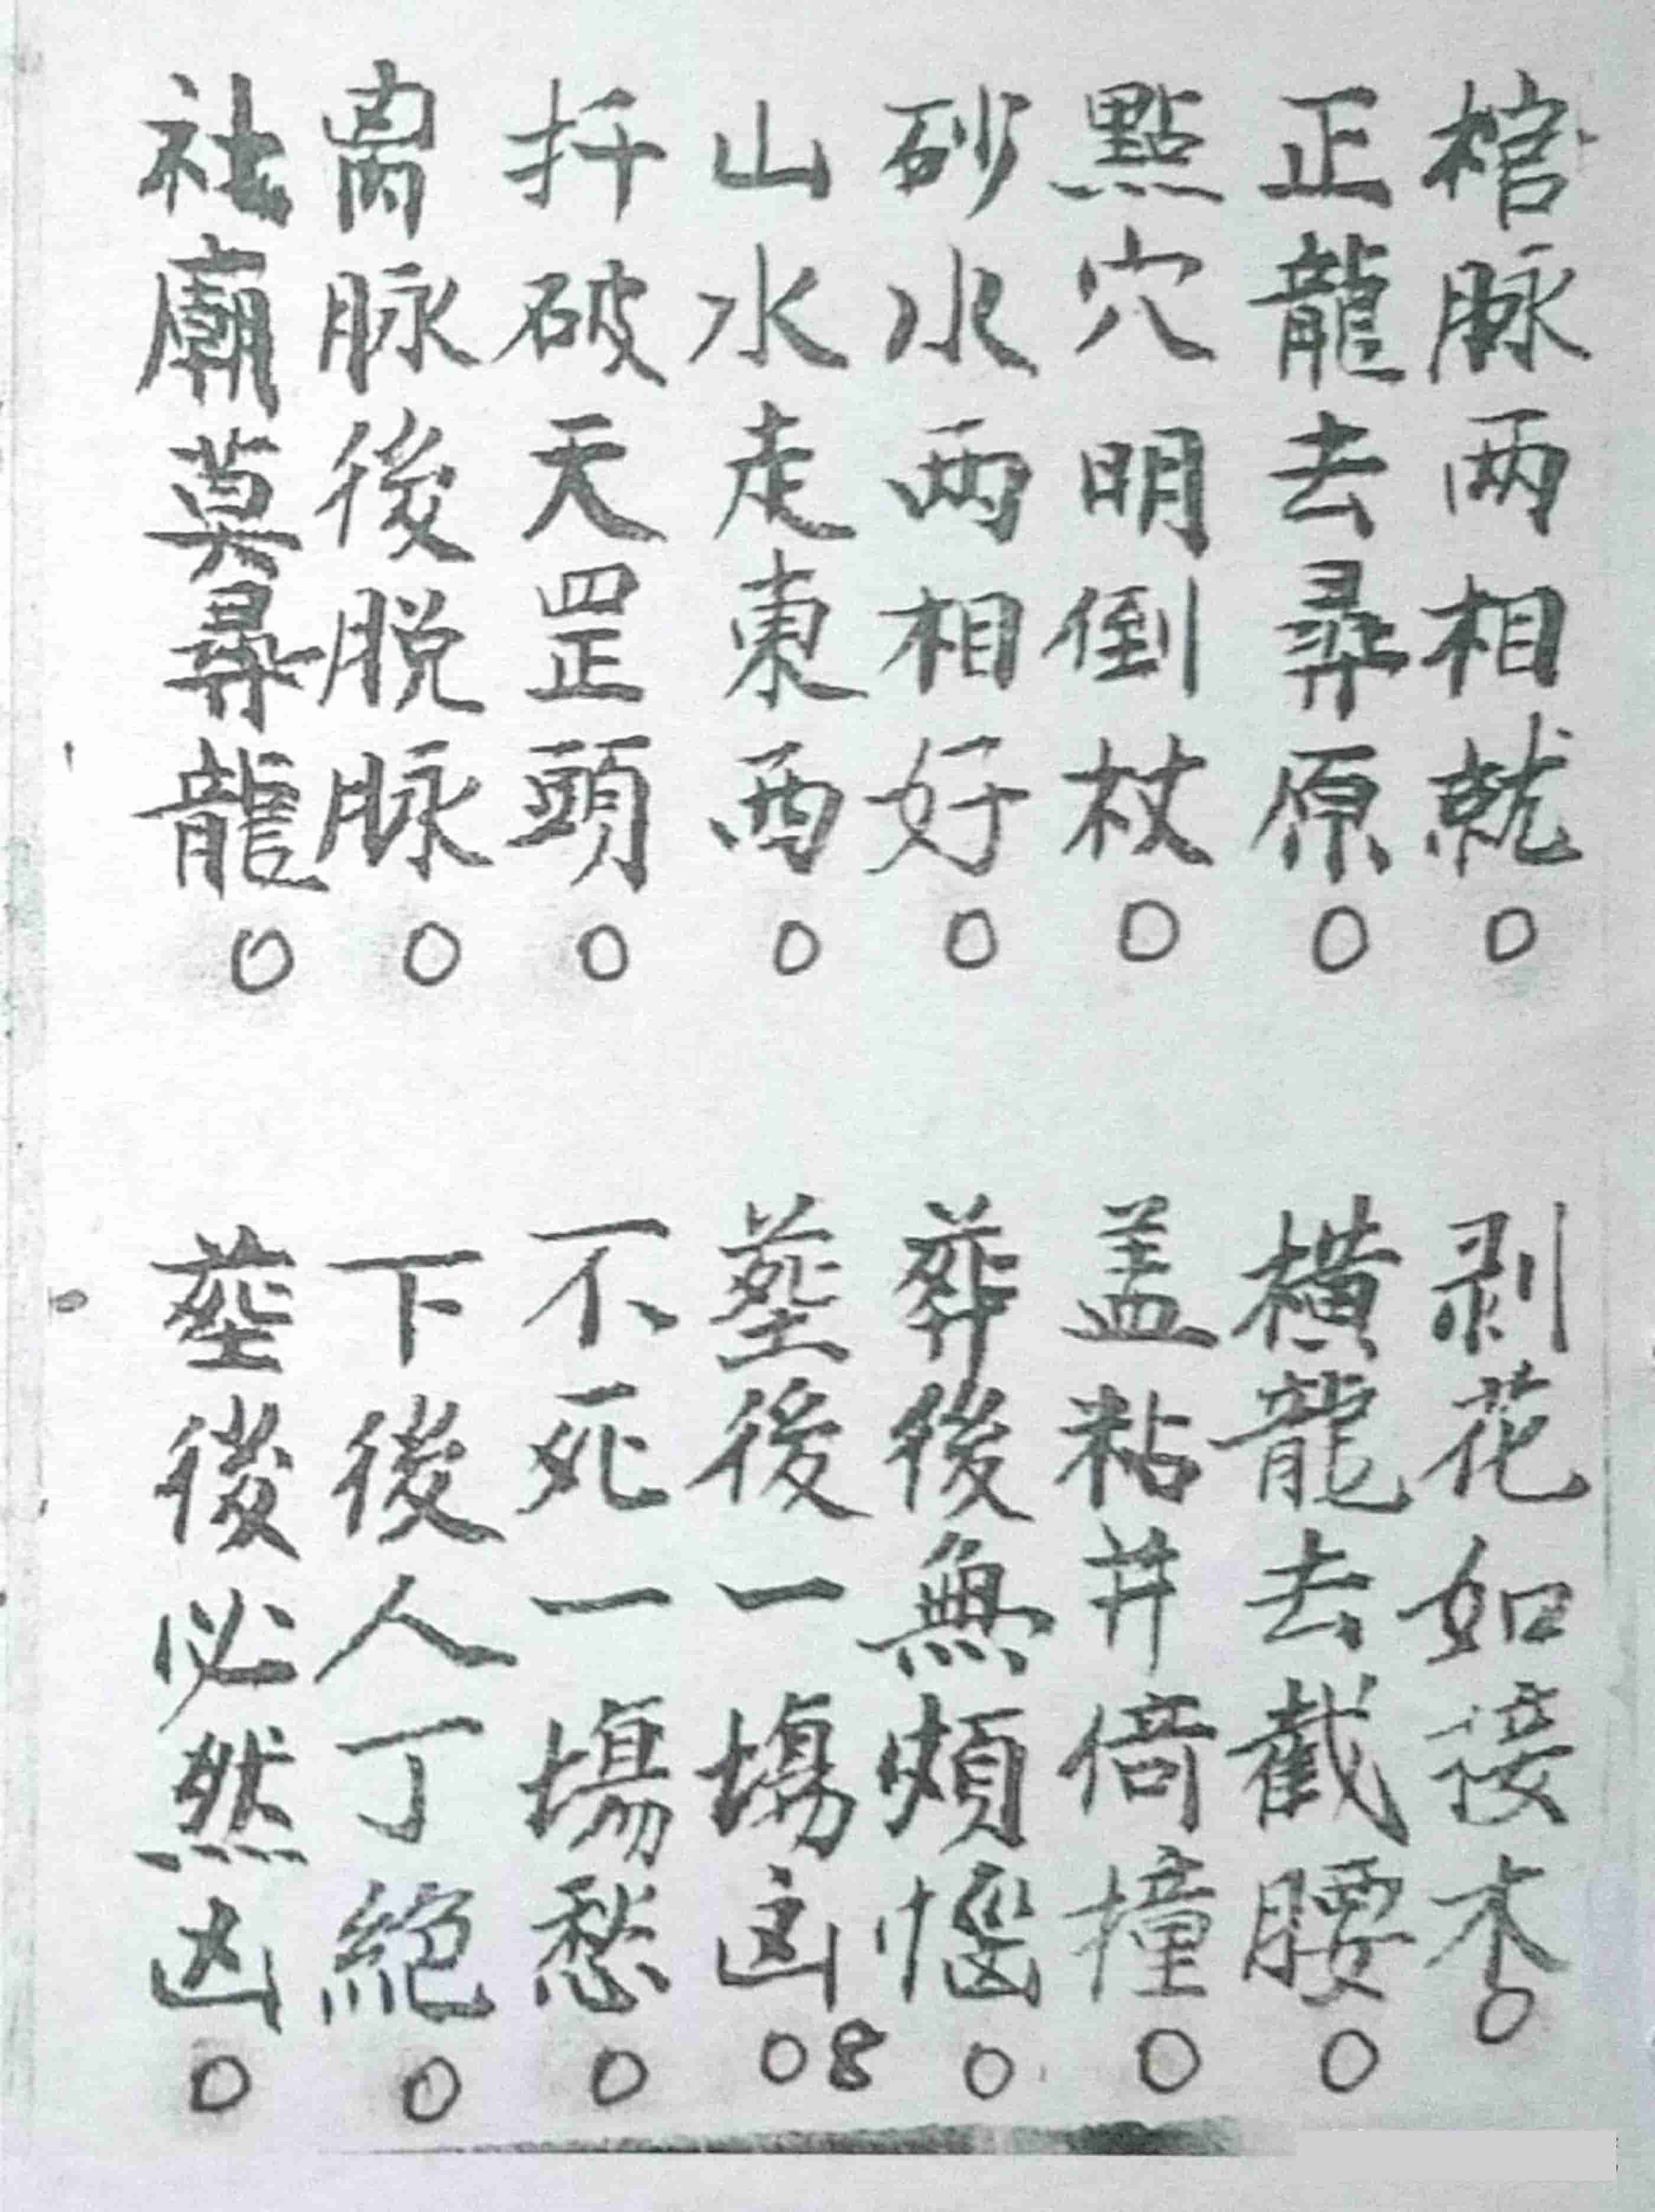 棺脉两相就○
剥花如接木○
正龍去尋原○
橫龍去截腰○
點穴明倒杖○
盖粘并倚撞○
砂水两相好○
葬後無煩惱○
山水走東西○
塟後一塲凶○8
扦破天罡頭○
不死一塲愁○
离脉後脱脉○
下後人丁絕○
社廟莫尋龍○
塟後必然凶○